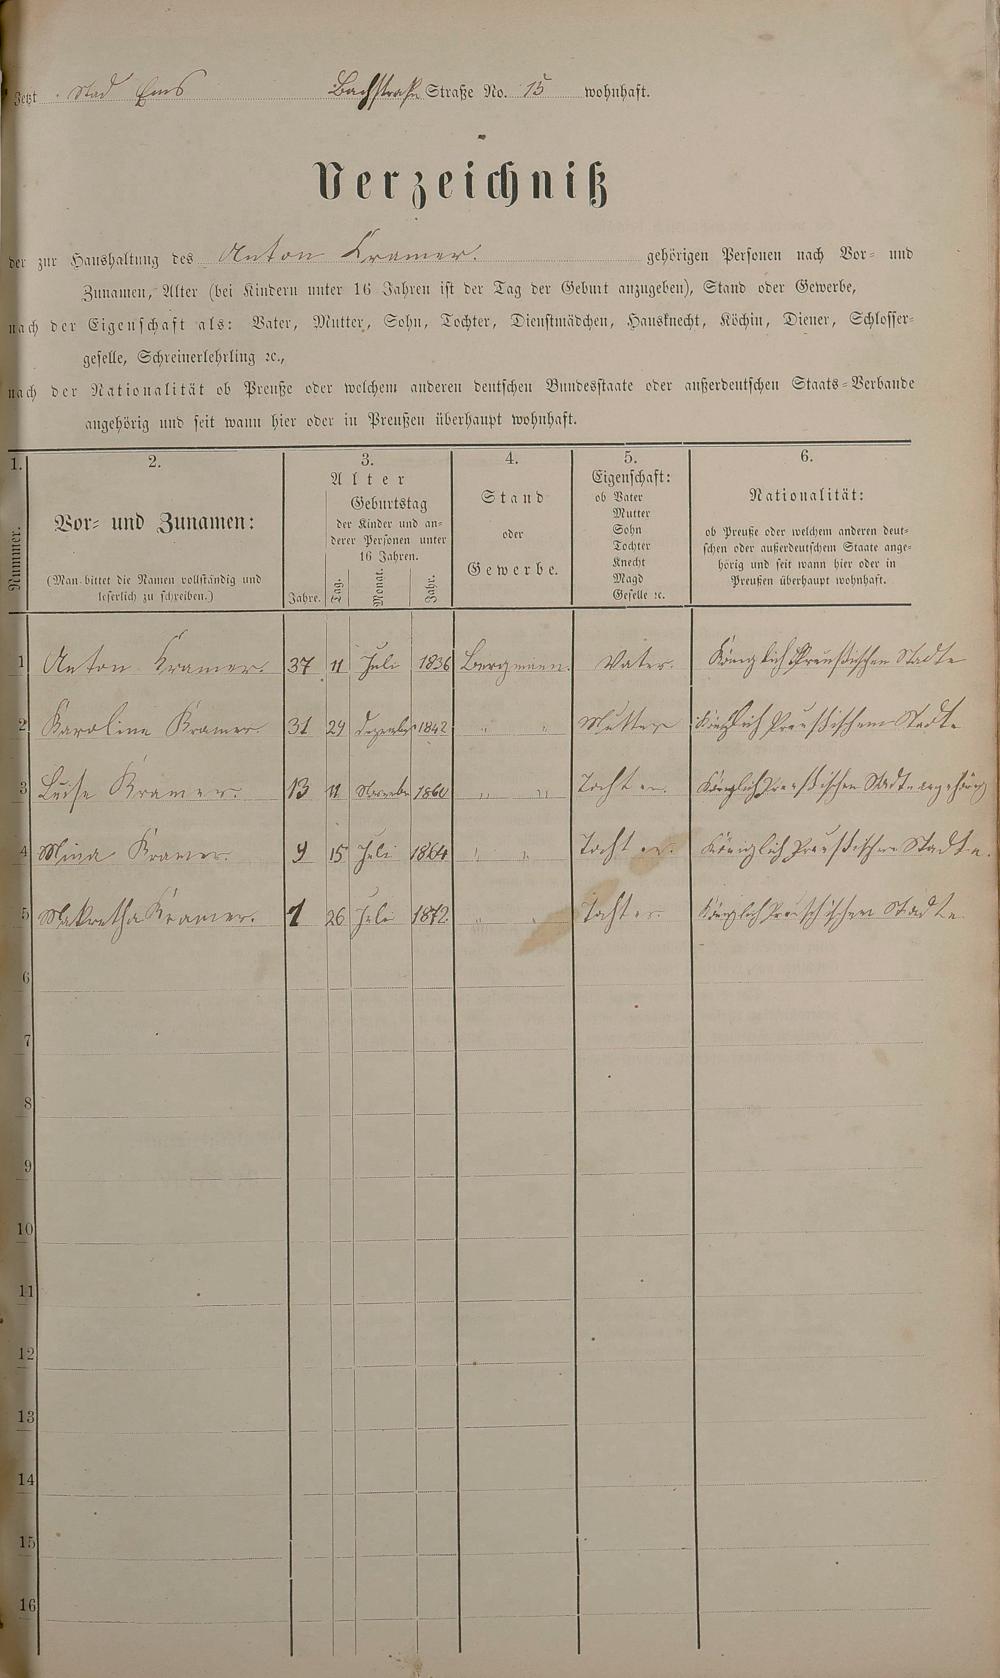 Jetzt Stad Ems Bachstraße Straße No. 15 wohnhaft.
Verzeichniß
der zur Haushaltung des Anton Kramer. gehörigen Personen nach Vor- und
Zunamen, Alter (bei Kindern unter 16 Jahren ist der Tag der Geburt anzugeben), Stand oder Gewerbe,
nach der Eigenschaft als: Vater, Mutter, Sohn, Tochter, Dienstmädchen, Hausknecht, Köchin, Diener, Schlosser-
geselle, Schreinerlehrling ꝛc.,
nach der Nationalität ob Preuße oder welchem anderen deutschen Bundesstaate oder außerdeutschen Staats-Verbande
angehörig und seit wann hier oder in Preußen überhaupt wohnhaft.
1. 2. 3. 4. 5. 6.
Nummer.
Vor- und Zunamen:
(Man bittet die Namen vollständig und
leserlich zu schreiben.)
Alter
Geburtstag
der Kinder und an-
derer Personen unter
16 Jahren.
Jahre. Tag. Monat. Jahr.
Stand
oder
Gewerbe.
Eigenschaft:
ob Vater
Mutter
Sohn
Tochter
Knecht
Magd
Geselle ꝛc.
Nationalität:
ob Preuße oder welchem anderen deut-
schen oder außerdeutschem Staate ange-
hörig und seit wann hier oder in
Preußen überhaupt wohnhaft.
1 Anton Kramer. 37 11 Juli 1836 Bergmann. Vater. Königlich Preußischen Stadte
2 Karoline Kramer. 31 29 Dezember 1842 " " Mutter Königlich Preußischem Stadte
3 Luise Kramer. 13 11 November 1860 " " Tochter. Königlich Preußischen Stadte angehörig
4 Mina Kramer. 9 15 Juli 1864 " " Tochter. Königlich Preußischen Stadte.
5 Makretha Kramer. 1 26 Juli 1872 " " Tochter. Königlich Preuschischem Stadte
6
7
8
9
10
11
12
13
14
15
16